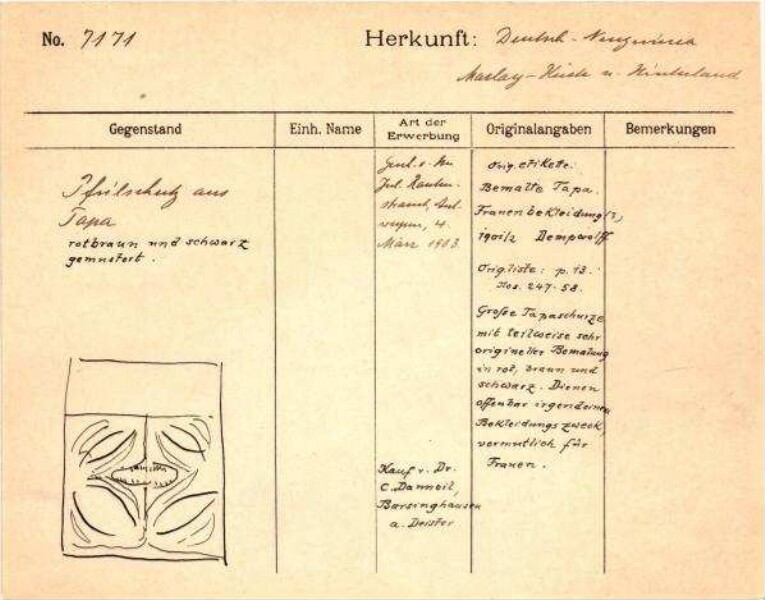 No. 7171
Herkunft: Deutsch-Neuguinea
Maclay-Küste u. Hinterland
Gegenstand
Einh. Name
Art der Erwerbung
Originalangaben
Bemerkungen
aus
Tapa
rotbraun und schwarz
gemustert.
Jul. Rauten-
strauch, Ant-
werpen, 4.
März 1903
Kauf v. Dr.
C. Danneil,
Barsinghausen
a. Deister
Orig. etikete:
Bemalte Tapa.
Frauenbekleidung(?)
1901/2 Dempwolff
Orig. liste: p. 13.
Nos. 247-58.
Große Tapaschurze
mit teilweise sehr
origineller Bemalung
in rot, braun und
schwarz. Dienen
offenbar irgendeinem
Bekleidungszweck,
vermutlich für
Frauen.